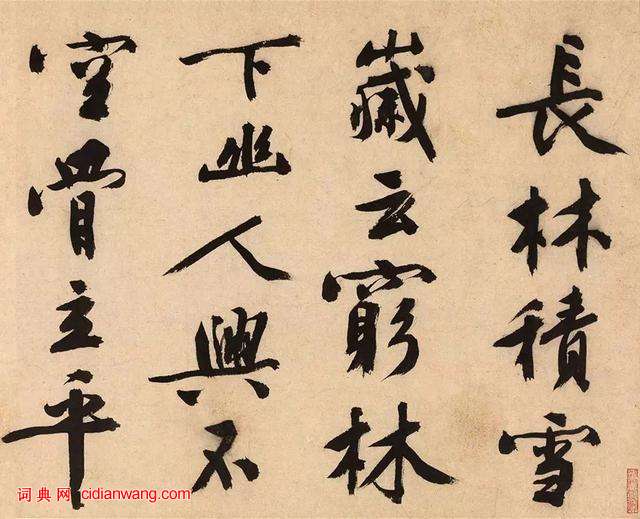 長林積雪
嵗云窮林
下幽人興不
空骨主平
词典网:cidianwang.com